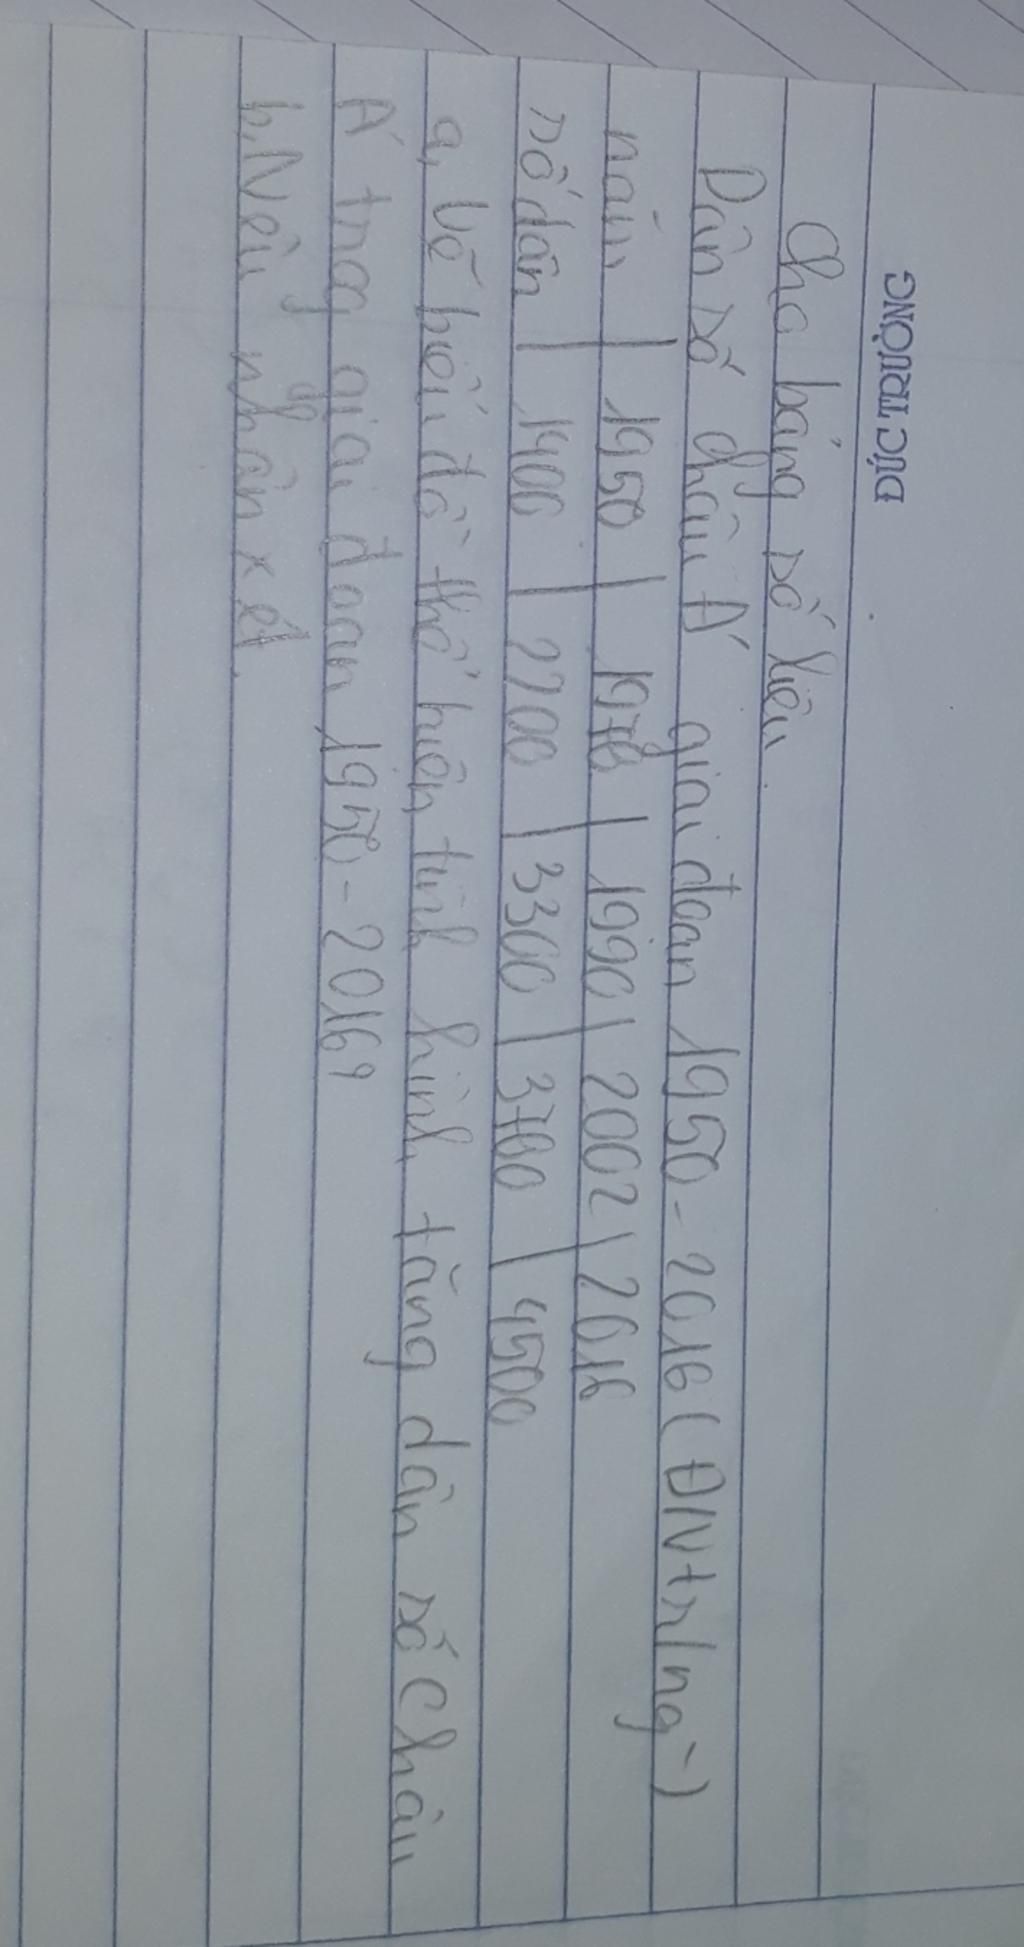 ĐỨC TRƯỢNG
Cho bảng số liệu
Dân số châu Á giai đoạn 1950-2016 (ĐIVtr/ng-)
năm | 1950 | 1970 | 1990 | 2002 | 2016
số dân | 1400 | 2200 | 3300 | 3700 | 4500
a, Vẽ biểu đồ thể hiện tình hình tăng dân số Châu
Á trog giai đoạn 1950-2016?
b, Nêu nhận xét.